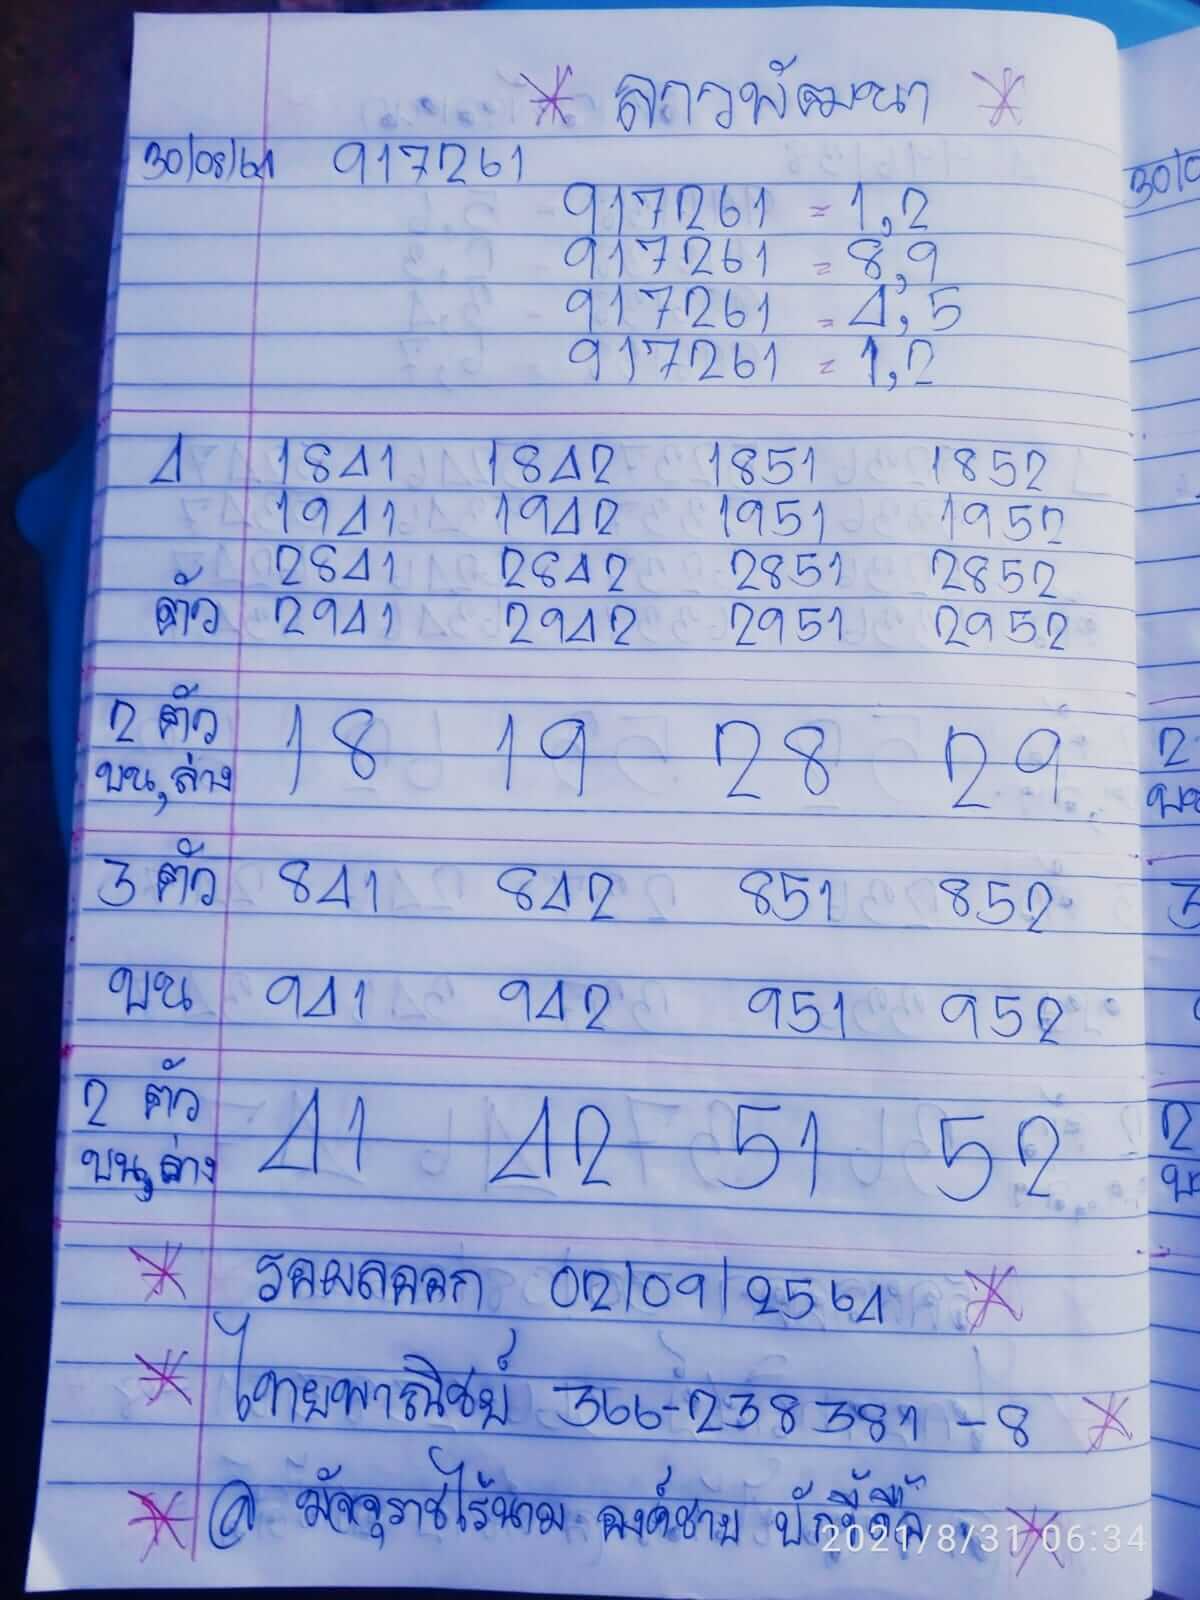 ลาวพัฒนา
30/08/64 917261
30/0
917261 = 1,2
917261 = 8,9
917261 = 4,5
917261 = 1,2
4 1841 1842 1851 1852
1941 1942 1951 1952
2841 2842 2851 2852
ตัว 2941 2942 2951 2952
2 ตัว 18 19 28 29 2
บน,ล่าง บน
3 ตัว 841 842 851 852 3
บน 941 942 951 952
2 ตัว 41 42 51 52 2
บน,ล่าง บน
รอผลออก 02/09/2564
ไทยพาณิชย์ 366-238381-8
@ มัจจุราชไร้นาม องค์ชาย
2021/8/31 06:34